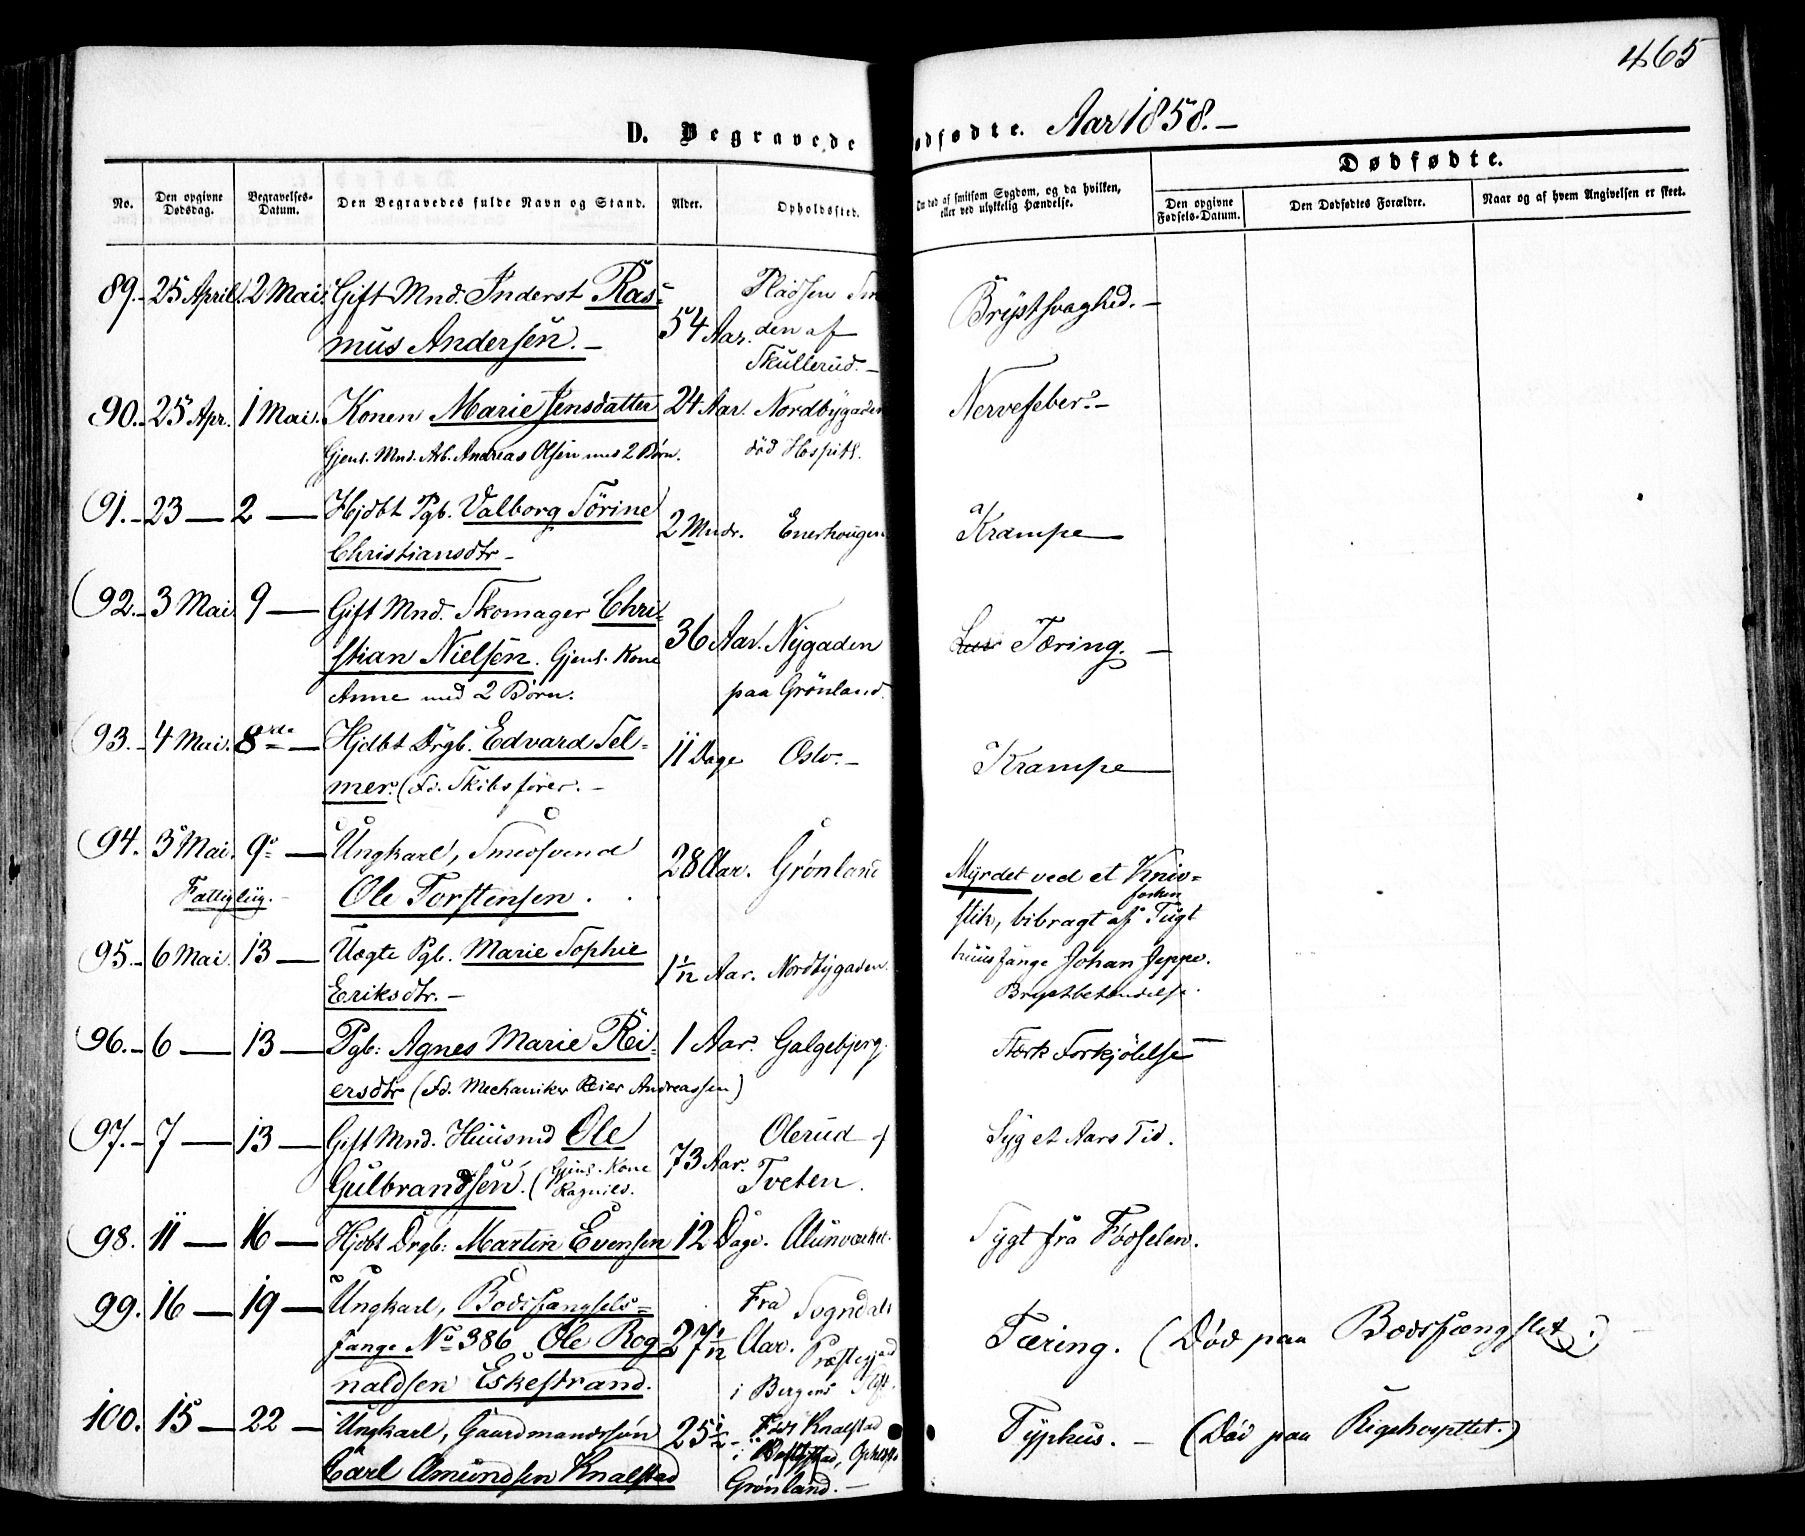 465
D. Begravede
ødfødte. Aar 1858.-
Dødfødte.
No.
Den opgivne Dødsdag.
Begravelses-Datum.
Den Begravedes fulde Navn og Stand.
Alder.
Opholdssted.
Om død af smitsom Sygdom, og da hvilken, eller ved ulykkelig Hændelse.
Den opgivne Fødsels-Datum.
Den Dødfødtes Forældre.
Naar og af hvem Angivelsen er skeet.
89.- 25 April. 2 Mai. Gift Mnd. Inderst Ras= 54 Aar. Pladsen Brystsvaghed.-
mus Andersen.- den af
Skullerud.-
90.- 25 Apr. 1 Mai. Konen Marie Jensdatter 24 Aar. Nordbygaden Nervefeber.-
Gjenl. Mnd. Arb. Andreas Olsen med 2 Børn. død Hospitl.
91.- 23 — 2 — Hjdbt Pgb. Valborg Sørine 2 Mndr. Enerhougen Krampe
Christiansdtr-
92.- 3 Mai. 9 — Gift Mnd. Skomager Chri= 36 Aar. Nygaden Tæring.-
stian Nielsen. Gjenl. Kone
Anne med 2 Børn. paa Grønland.
93.- 4 Mai. 8de — Hjdbt Drgb. Edvard Sel= 11 Dage Oslo.- Krampe
mer. (Fd. Skibsfører.-
94. 3 Mai. 9. — Ungkarl, Smedsvend 28 Aar. Grønland Myrdet ved et Kniv=
Fattiglig.- Ole Torstensen. stik, bibragt af Tugt
95.- 6 Mai. 13 — Uægte Pgb. Marie Sophie 1 1/12 Aar. Nordbygaden. huusfange Johan Jeppe.
Eriksdtr.- Brystbetændelse.
96.- 6 — 13 — Pgb: Agnes Marie Rei= 1 Aar. Galgebjerg. Stærk Forkjølelse
ersdtr (Fd. Mechaniker Reier Andreassen)
97.- 7 — 13 — Gift Mnd. Huusmd Ole 73 Aar. Olerud Syg et Aars Tid.
Gulbrandsen. (Gjenl. Kone Ragnild. Tveten.
98. 11 — 16 — Hjdbt Drgb: Martin Evensen 12 Dage. Alunværket. Sygt fra Fødselen.
99. 16 — 19 — Ungkarl, Bodsfængsels= Fra Sogndals
fange No 386 Ole Rog= 27 Aar. Præstegjæld Tæring. (Død paa Bodsfængslet.)
naldsen Eskestrand. i Bergens Stift.
100. 15 — 22 — Ungkarl, Gaardmandssøn 25 Fra Knalstad Typhus.- (Død paa Rigshospitlet.)
Carl Amundsen Knalstad i
Grønland.-